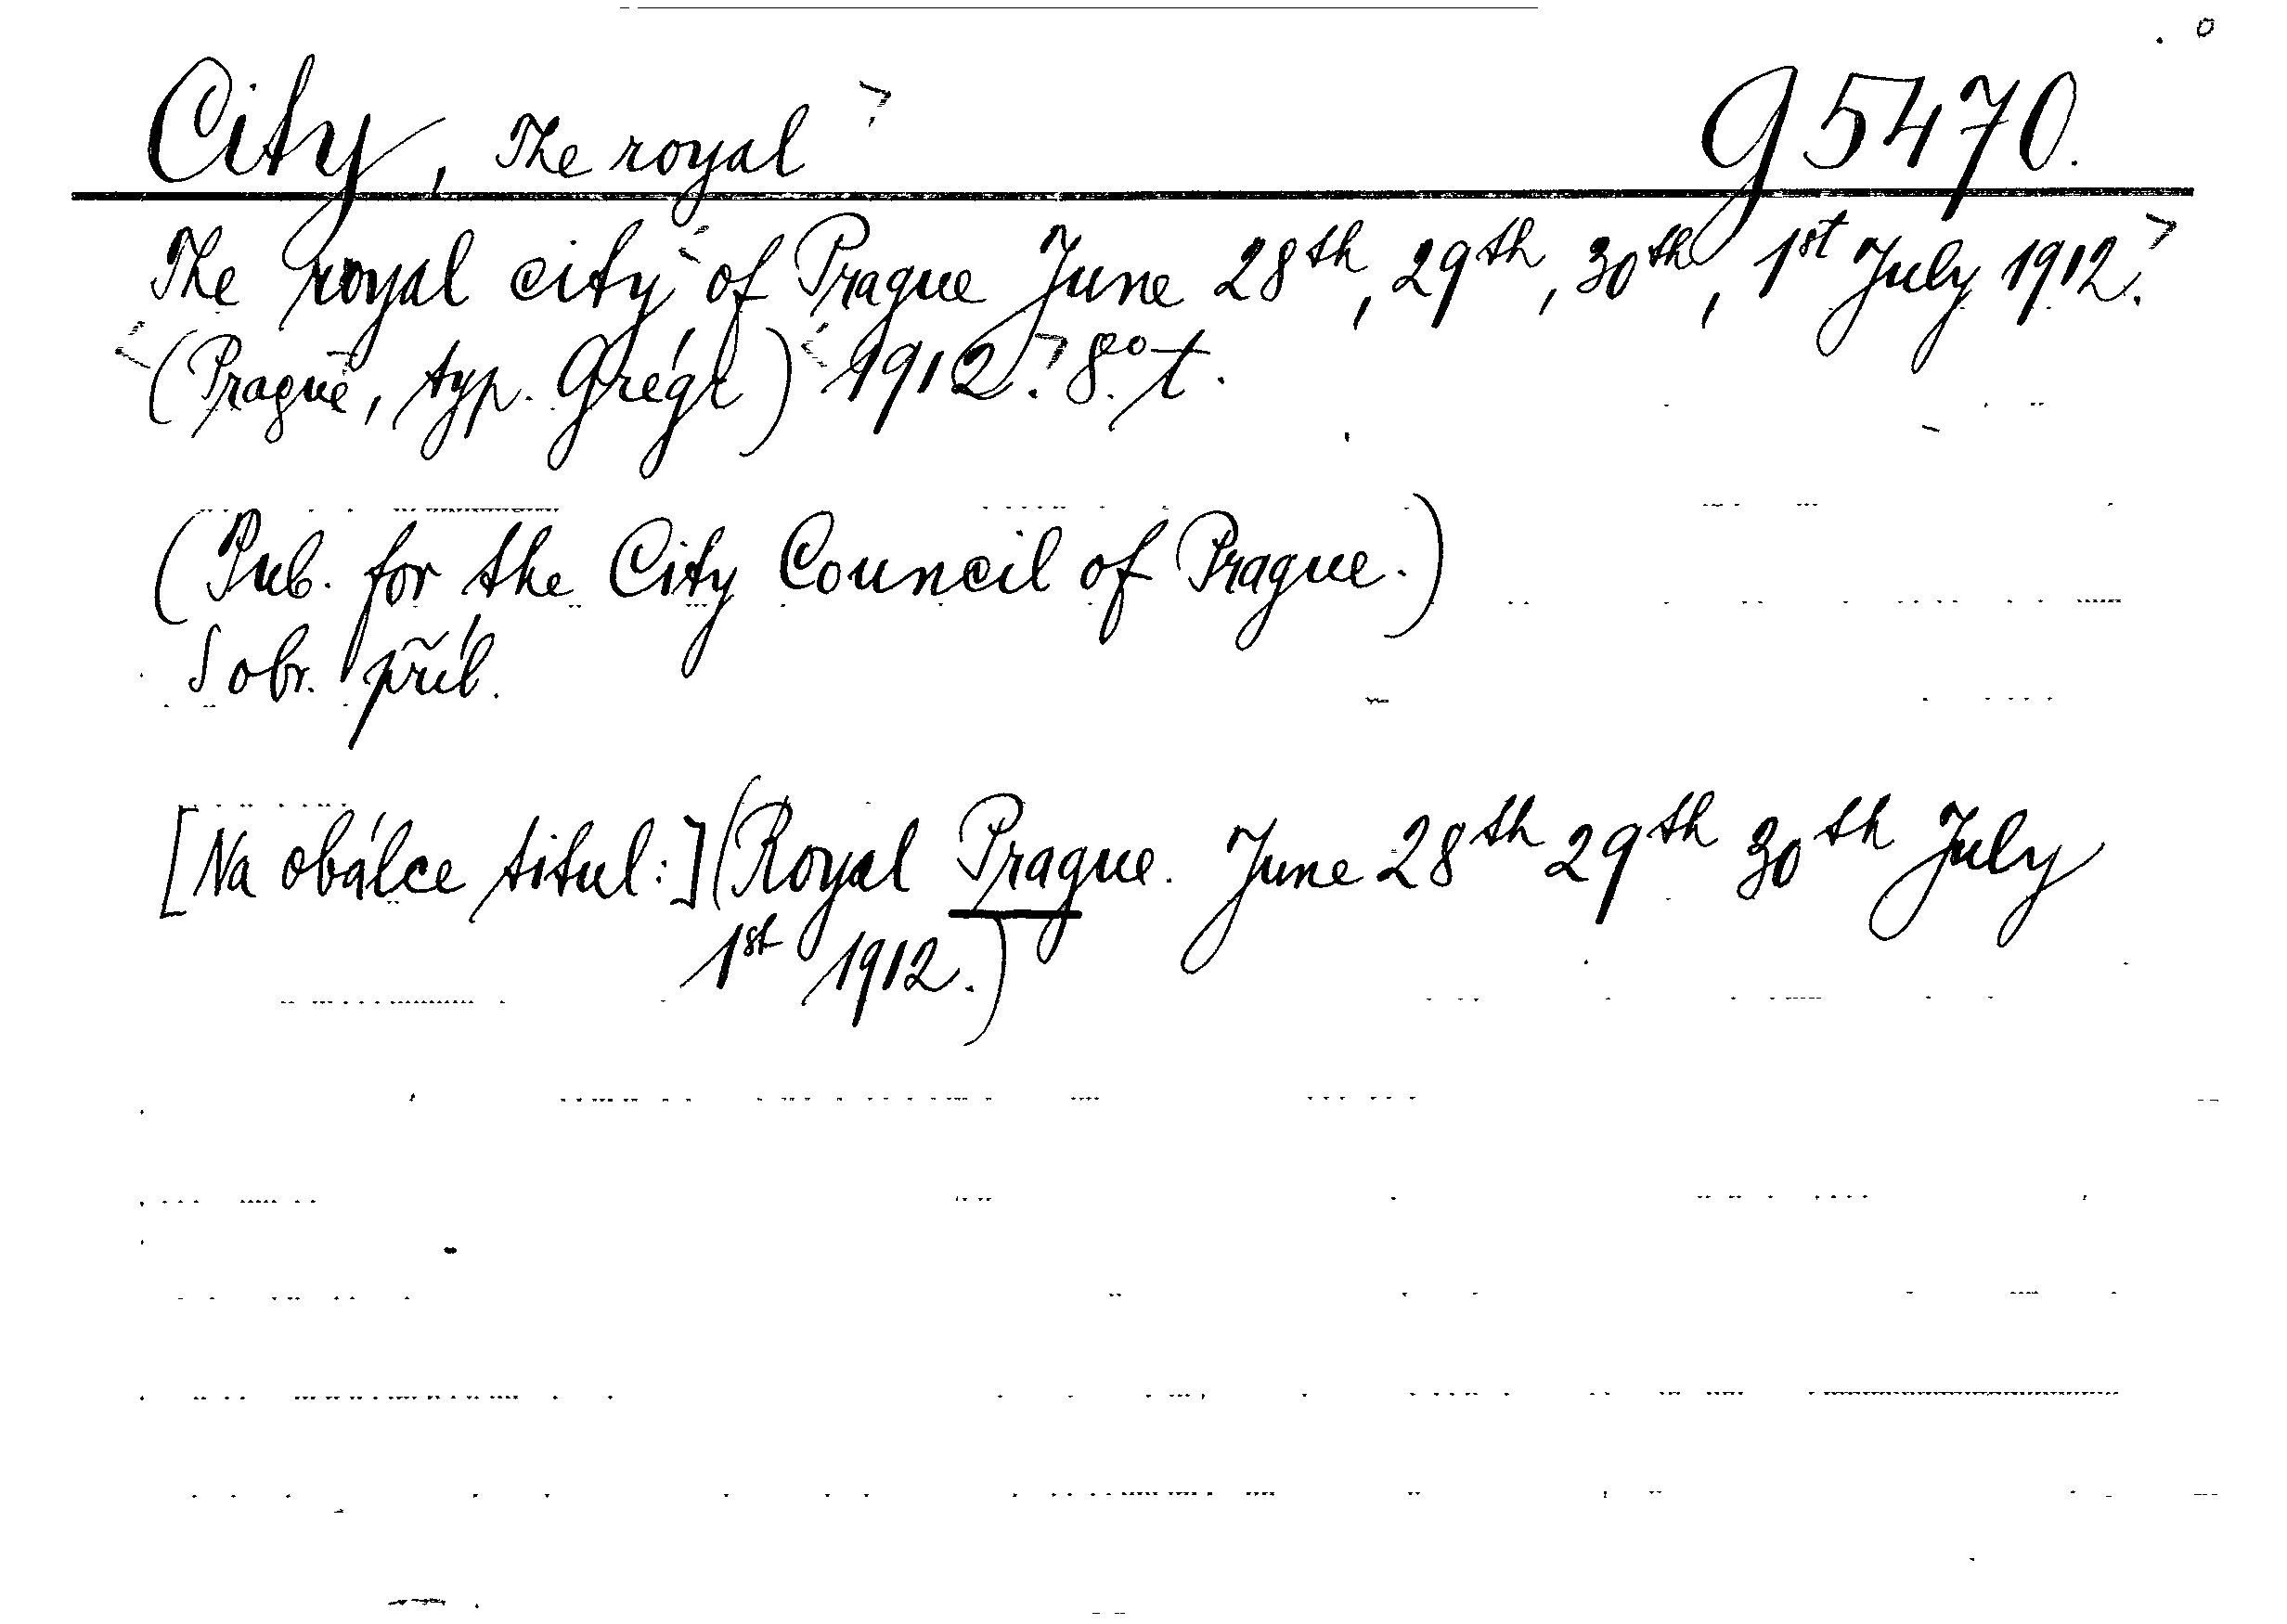 City, The royal G 5470.
The royal city of Prague June 28th, 29th, 30th, 1st July 1912.
(Prague, typ. Grégr) 1912. 8° t.
(Pub. for the City Council of Prague.)
S obr. příl.
[Na obálce titul:] (Royal Prague. June 28th 29th 30th July
1st 1912.)